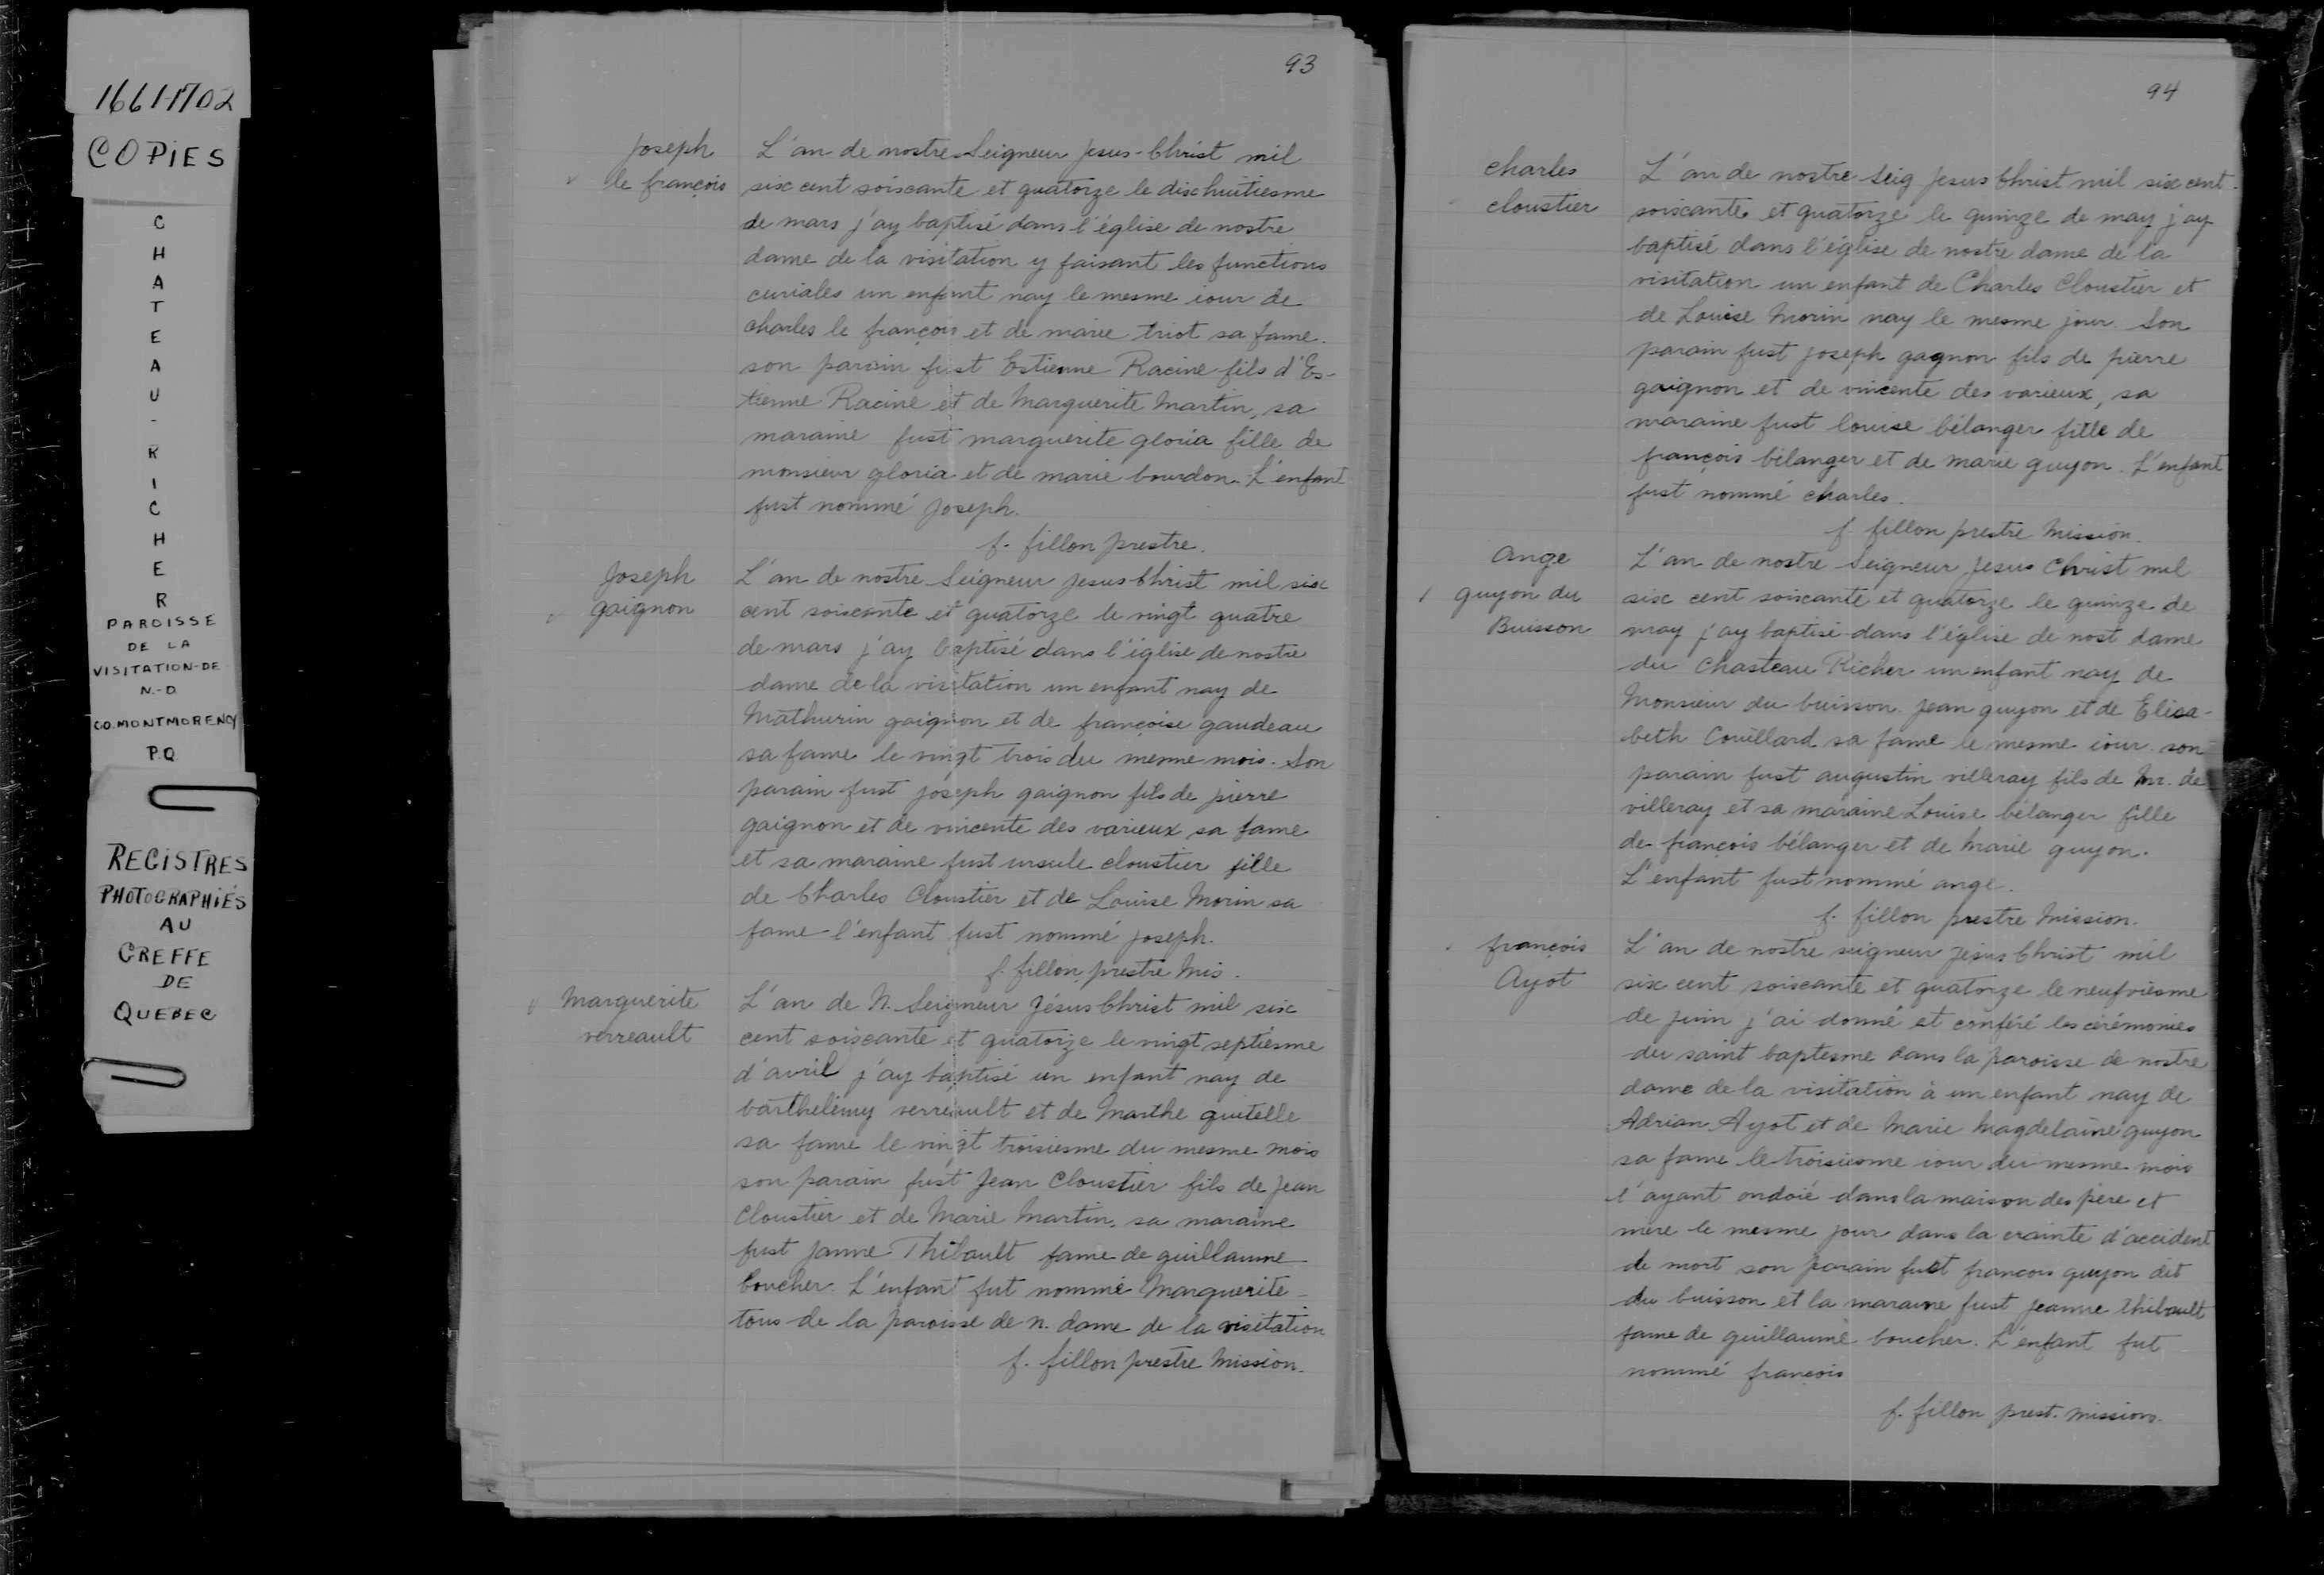 1661-1702
COPIES
CHATEAU-RICHER
PAROISSE
DE LA
VISITATION-DE
N.-D.
CO. MONTMORENCY
P.Q.
REGISTRES
PHOTOGRAPHIÉS
AU
GREFFE
DE
QUEBEC
93
Joseph
le françois
L'an de nostre Seigneur Jesus-Christ mil
six cent soiscante et quatorze le dixhuitiesme
de mars j'ay baptisé dans l'église de nostre
dame de la visitation y faisant les functions
curiales un enfant nay le mesme iour de
charles le françois et de marie triot sa fame.
son parain fust Estienne Racine fils d'Es-
tienne Racine et de Marguerite Martin, sa
maraine fust marguerite gloria fille de
monsieur gloria et de marie bourdon. L'enfant
fust nommé Joseph.
f. fillon prestre.
Joseph
gaignon
L'an de nostre Seigneur Jesus-Christ mil six
cent soiscante et quatorze le vingt quatre
de mars j'ay baptisé dans l'église de nostre
dame de la visitation un enfant nay de
Mathurin gaignon et de françoise gaudeau
sa fame le vingt trois du mesme mois. Son
parain fust joseph gaignon fils de pierre
gaignon et de vincente des varieux sa fame
et sa maraine fust ursule cloustier fille
de Charles Cloustier et de Louise Morin sa
fame l'enfant fust nommé joseph.
f. fillon prestre Mis.
Marguerite
verreault
L'an de N. Seigneur Jésus Christ mil six
cent soiscante et quatorze le vingt septiesme
d'avril j'ay baptisé un enfant nay de
barthelémy verreault et de Marthe quitelle
sa fame le vingt troisiesme du mesme mois
son parain fust Jean Cloustier fils de Jean
Cloustier et de Marie Martin. sa maraine
fust Janne Thibault fame de guillaume
boucher. L'enfant fut nommé Marguerite-
tous de la paroisse de n. dame de la visitation
f. fillon prestre Mission.
94
charles
cloustier
L'an de nostre Seig Jesus Christ mil six cent
soiscante et quatorze le quinze de may j'ay
baptisé dans l'église de nostre dame de la
visitation un enfant de Charles Cloustier et
de Louise Morin nay le mesme jour. Son
parain fust joseph gagnon fils de pierre
gaignon et de vincente des varieux, sa
maraine fust louise bélanger fille de
françois bélanger et de marie guyon. L'enfant
fust nommé charles.
f. fillon prestre Mission.
ange
guyon du
Buisson
L'an de nostre Seigneur Jesus Christ mil
six cent soixcante et quatorze le quinze de
may j'ay baptisé dans l'église de nost dame
du Chasteau Richer un enfant nay de
Monsieur du buisson jean guyon et de Elisa-
beth Couillard sa fame le mesme iour. son
parain fust augustin villeray fils de Mr. de
villeray et sa maraine Louise bélanger fille
de françois bélanger et de Marie guyon.
L'enfant fust nommé ange.
f. fillon prestre Mission.
françois
Ayot
L'an de nostre seigneur Jésus Christ mil
six cent soiscante et quatorze le neufviesme
de juin j'ai donné et conféré les cérémonies
du saint baptesme dans la paroisse de nostre
dame de la visitation à un enfant nay de
Adrian Ayot et de Marie Magdelaine guyon
sa fame le troisiesme iour du mesme mois
l'ayant ondoié dans la maison des père et
mere le mesme jour dans la crainte d'accident
de mort son parain fust francois guyon dit
du buisson et la maraine fust Jeanne thibault
fame de guillaume boucher. L'enfant fut
nommé françois
f. fillon prest. mission.